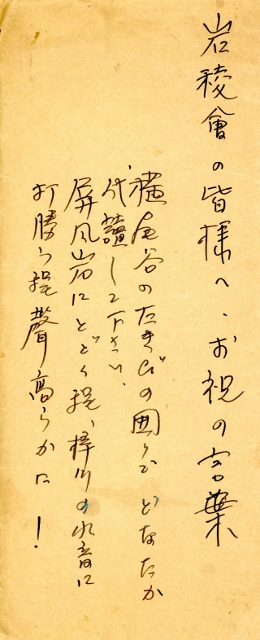 岩稜會の皆様へ、お祝の言葉
横尾谷のたきびの囲りでどなたか
代讀して下さい、
屏風岩にとどく程、梓川の水音に
打勝つ程聲高らかに！